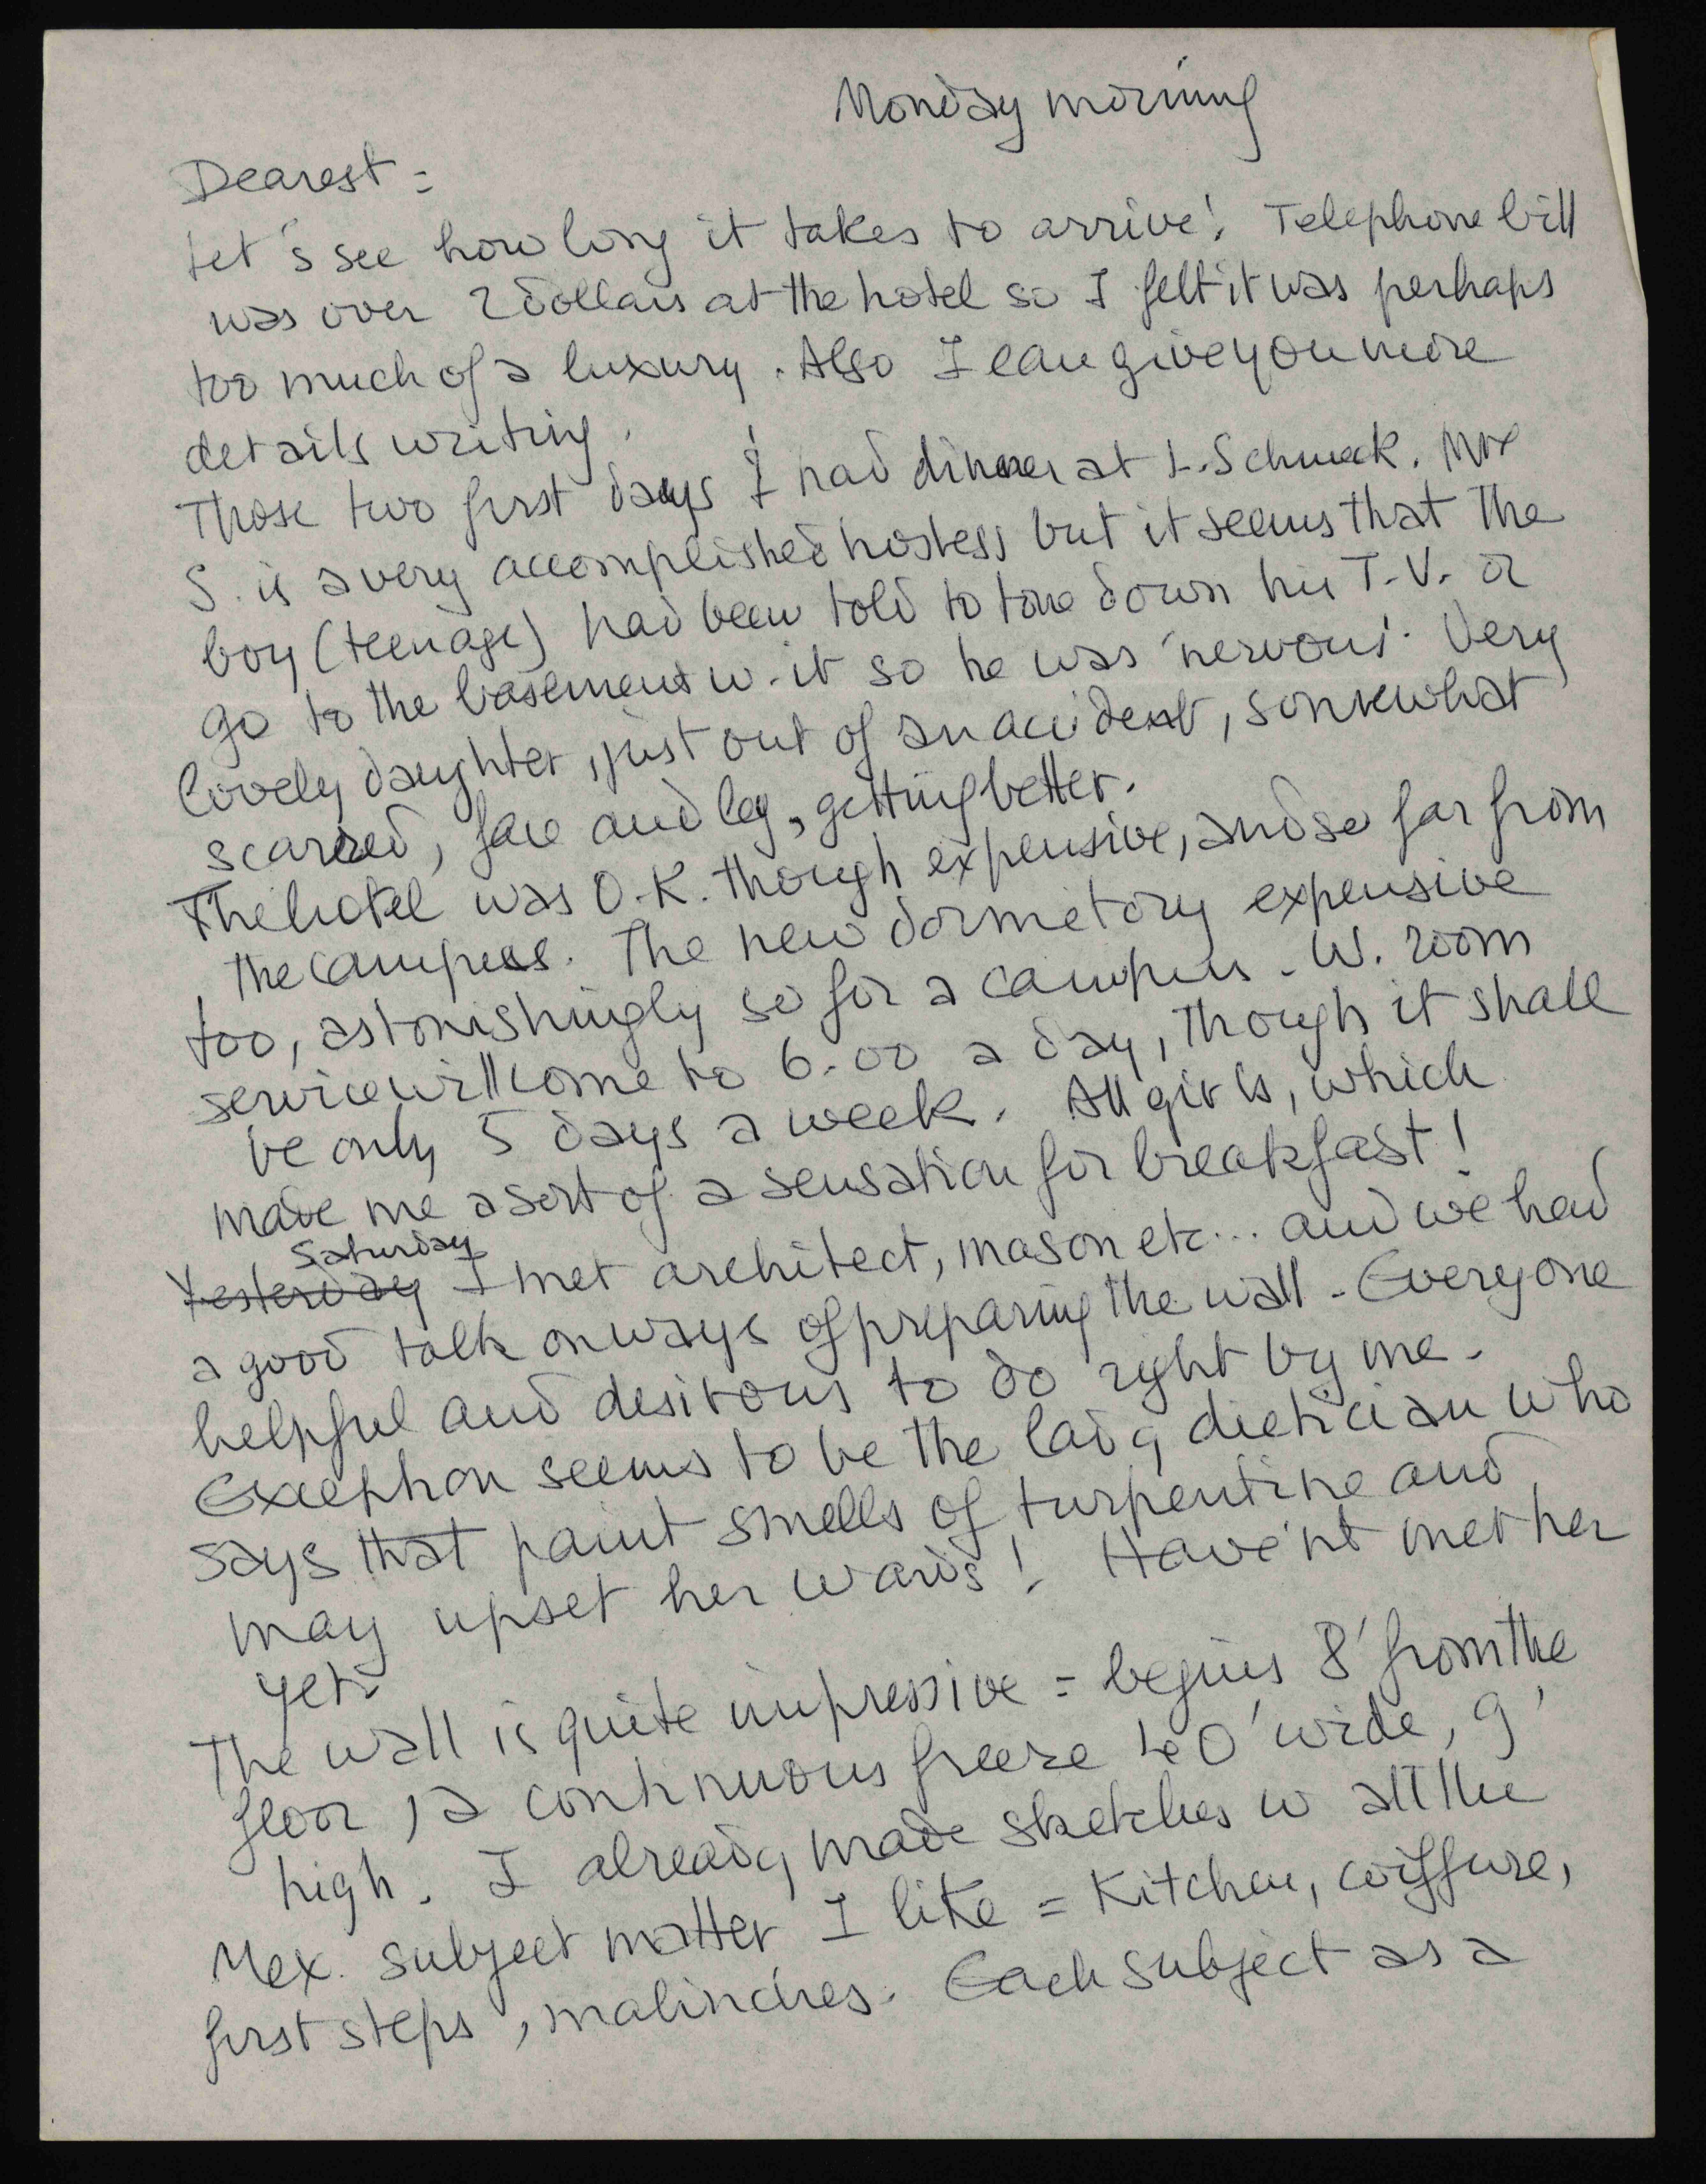 Monday morning
Dearest =
Let's see how long it takes to arrive! Telephone bill
was over 2 dollars at the hotel so I felt it was perhaps
too much of a luxury. Also I can give you more
details writing.
Those two first days I had dinner at L. Schmeck. Mrs
S. is a very accomplished hostess but it seems that the
boy (teenage) had been told to tone down his T.V. or
go to the basement w. it so he was 'nervous'. Very
lovely daughter, just out of an accident, somewhat
scarred, face and leg, getting better.
The hotel was O.K. though expensive, and so far from
the campus. The new dormetory expensive
too, astonishingly so for a campus. W. room
service will come to 6.00 a day, though it shall
be only 5 days a week. All girls, which
made me a sort of a sensation for breakfast!
Saturday
Yesterday I met architect, mason etc... and we had
a good talk on ways of preparing the wall. Everyone
helpful and desirous to do right by me.
Exception seems to be the lady dietician who
says that paint smells of turpentine and
may upset her wards! Have'nt met her
yet.
The wall is quite impressive = begins 8' from the
floor, a continuous freeze 40' wide, 9'
high. I already made sketches w all the
Mex. subject matter I like = Kitchen, coiffure,
first steps, malinches. Each subject as a